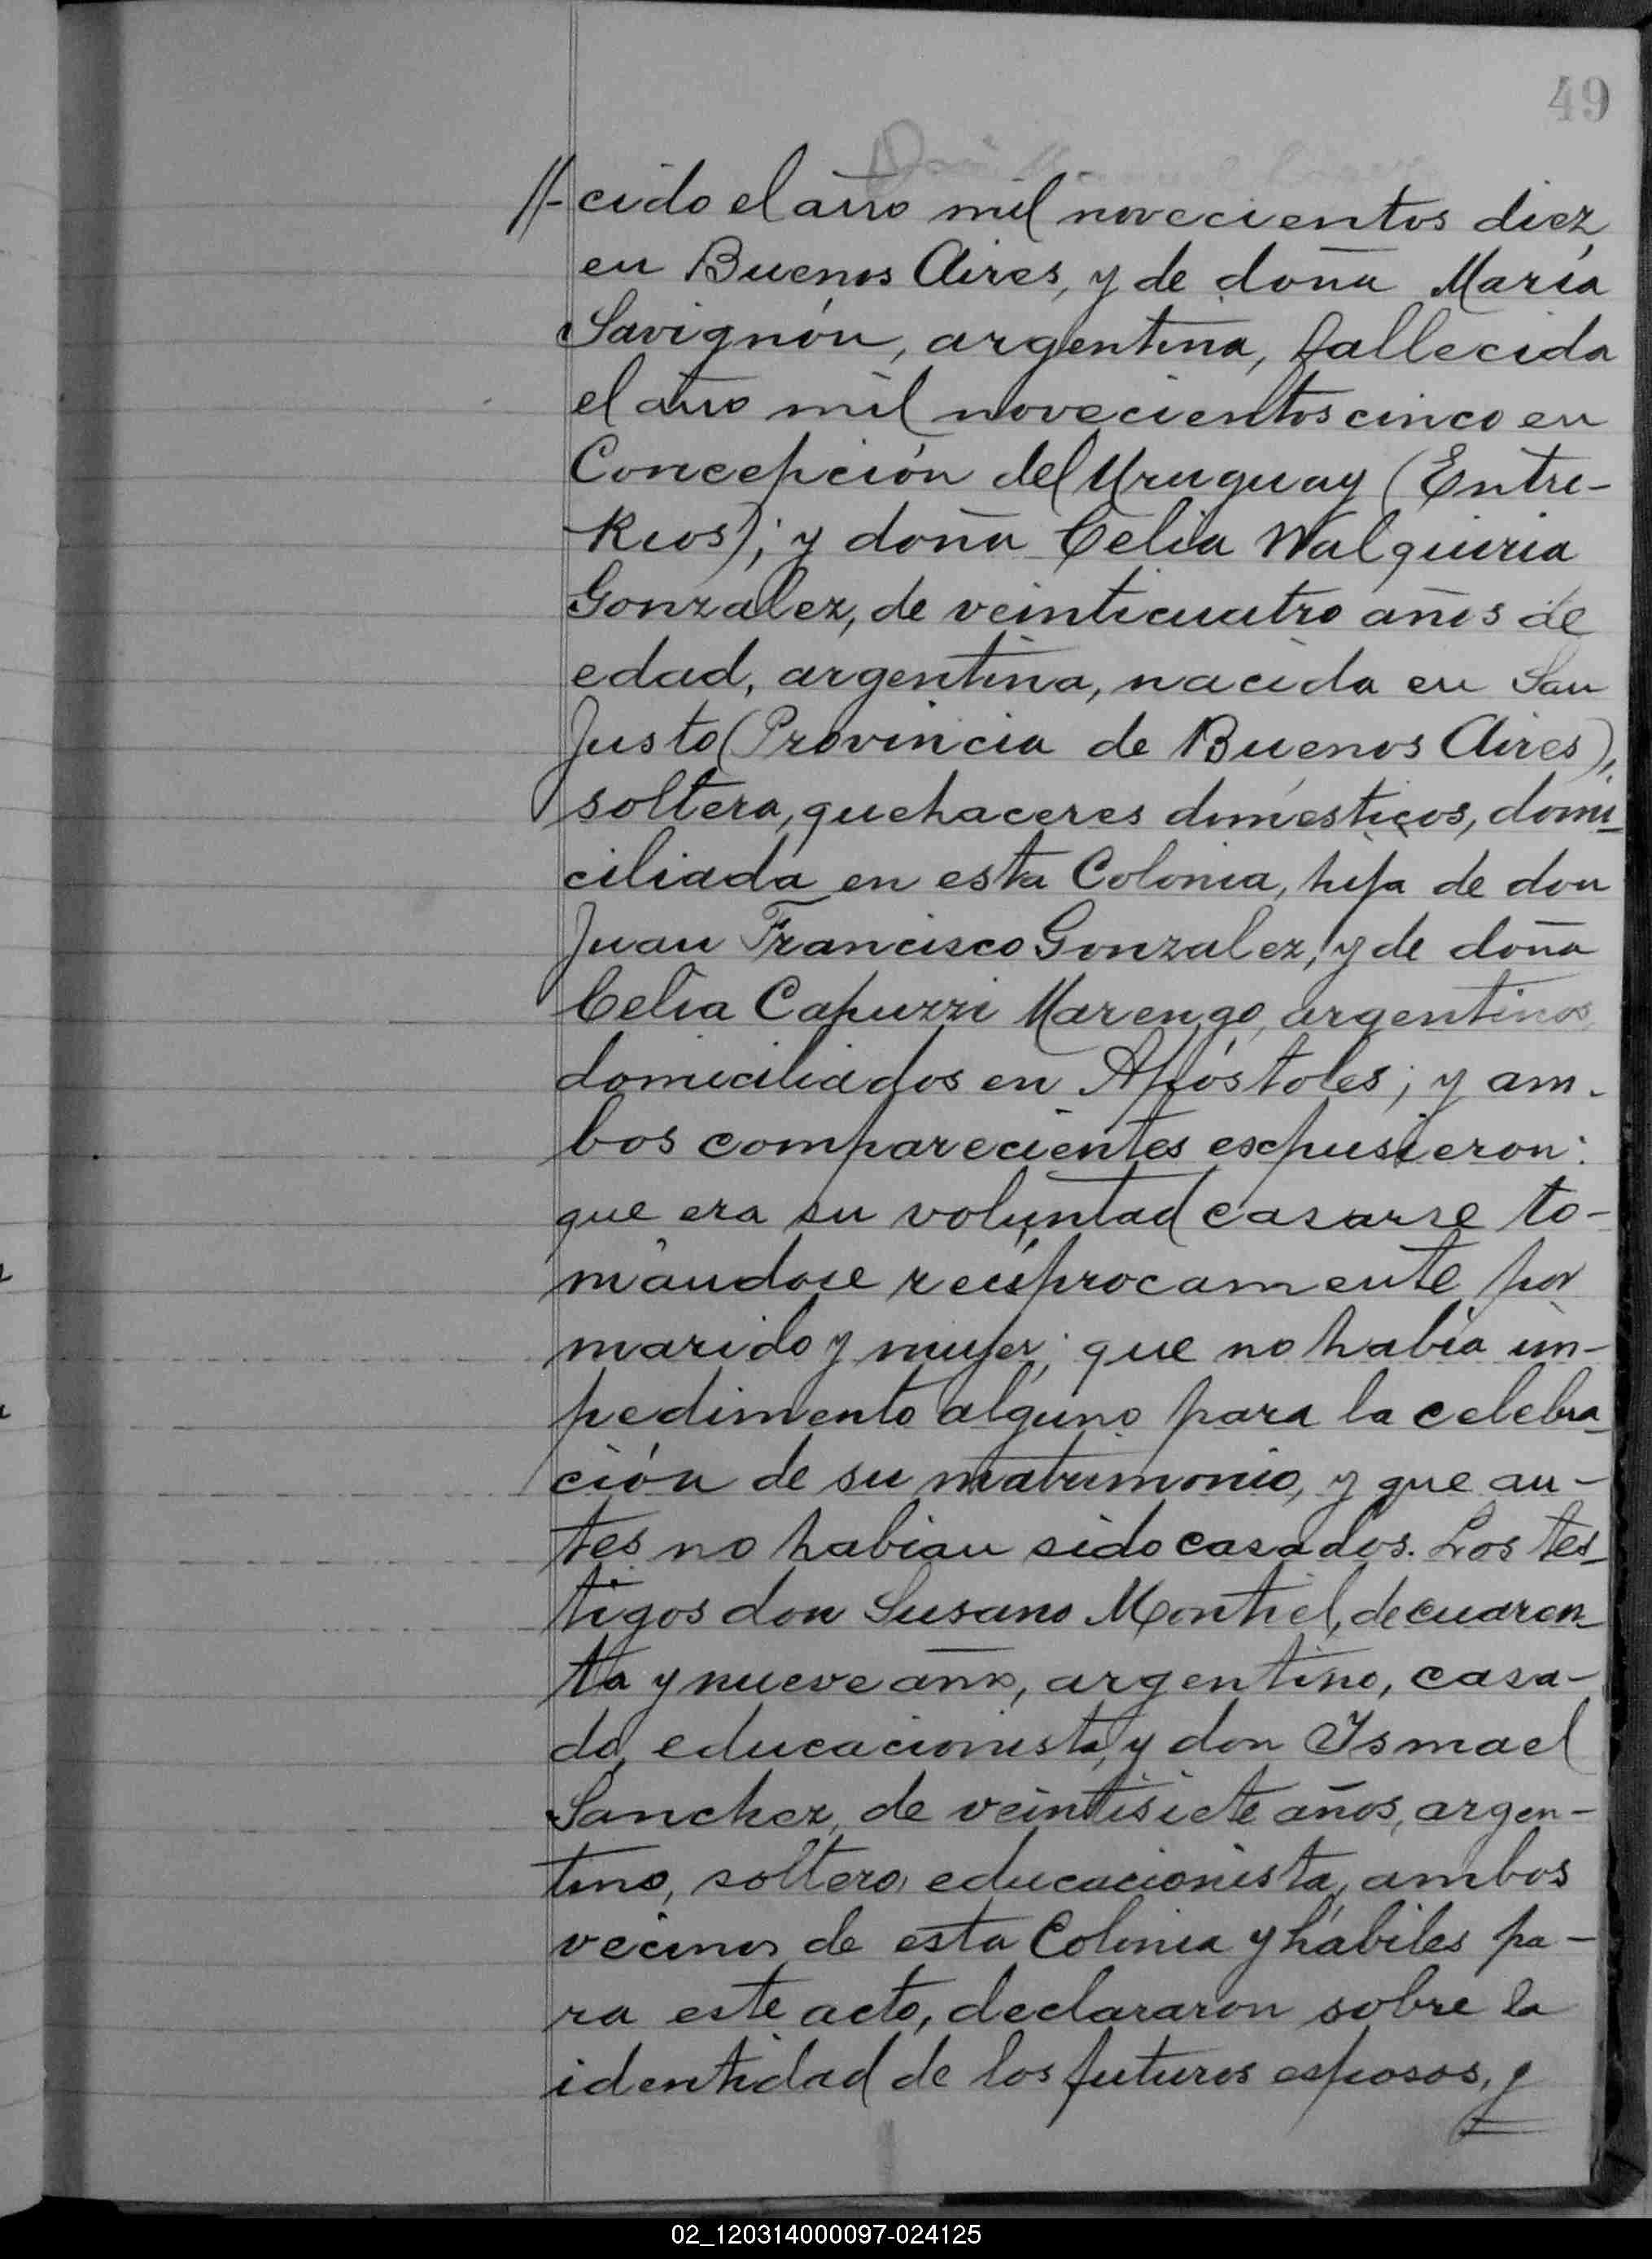 49
//-cido el año mil novecientos diez
en Buenos Aires, y de doña María
Savignón, argentina, fallecida
el año mil novecientos cinco en
Concepción del Uruguay (Entre-
Rios); y doña Celia Walquiria
Gonzalez, de veinticuatro años de
edad, argentina, nacida en San
Justo (Provincia de Buenos Aires),
soltera, quehaceres domésticos, domi-
ciliada en esta Colonia, hija de don
Juan Francisco Gonzalez, y de doña
Celia Capuzzi Marengo, argentinos,
domiciliados en Apóstoles; y am-
bos comparecientes expusieron:
que era su voluntad casarse to-
mándose recíprocamente por
marido y mujer; que no había im-
pedimento alguno para la celebra-
ción de su matrimonio, y que an-
tes no habian sido casados. Los tes-
tigos don Susano Montiel, de cuaren-
ta y nueve años, argentino, casa-
do, educacionista, y don Ismael
Sanchez, de veintisiete años, argen-
tino, soltero, educacionista, ambos
vecinos de esta Colonia y hábiles pa-
ra este acto, declararon sobre la
identidad de los futuros esposos, y
02_120314000097-024125